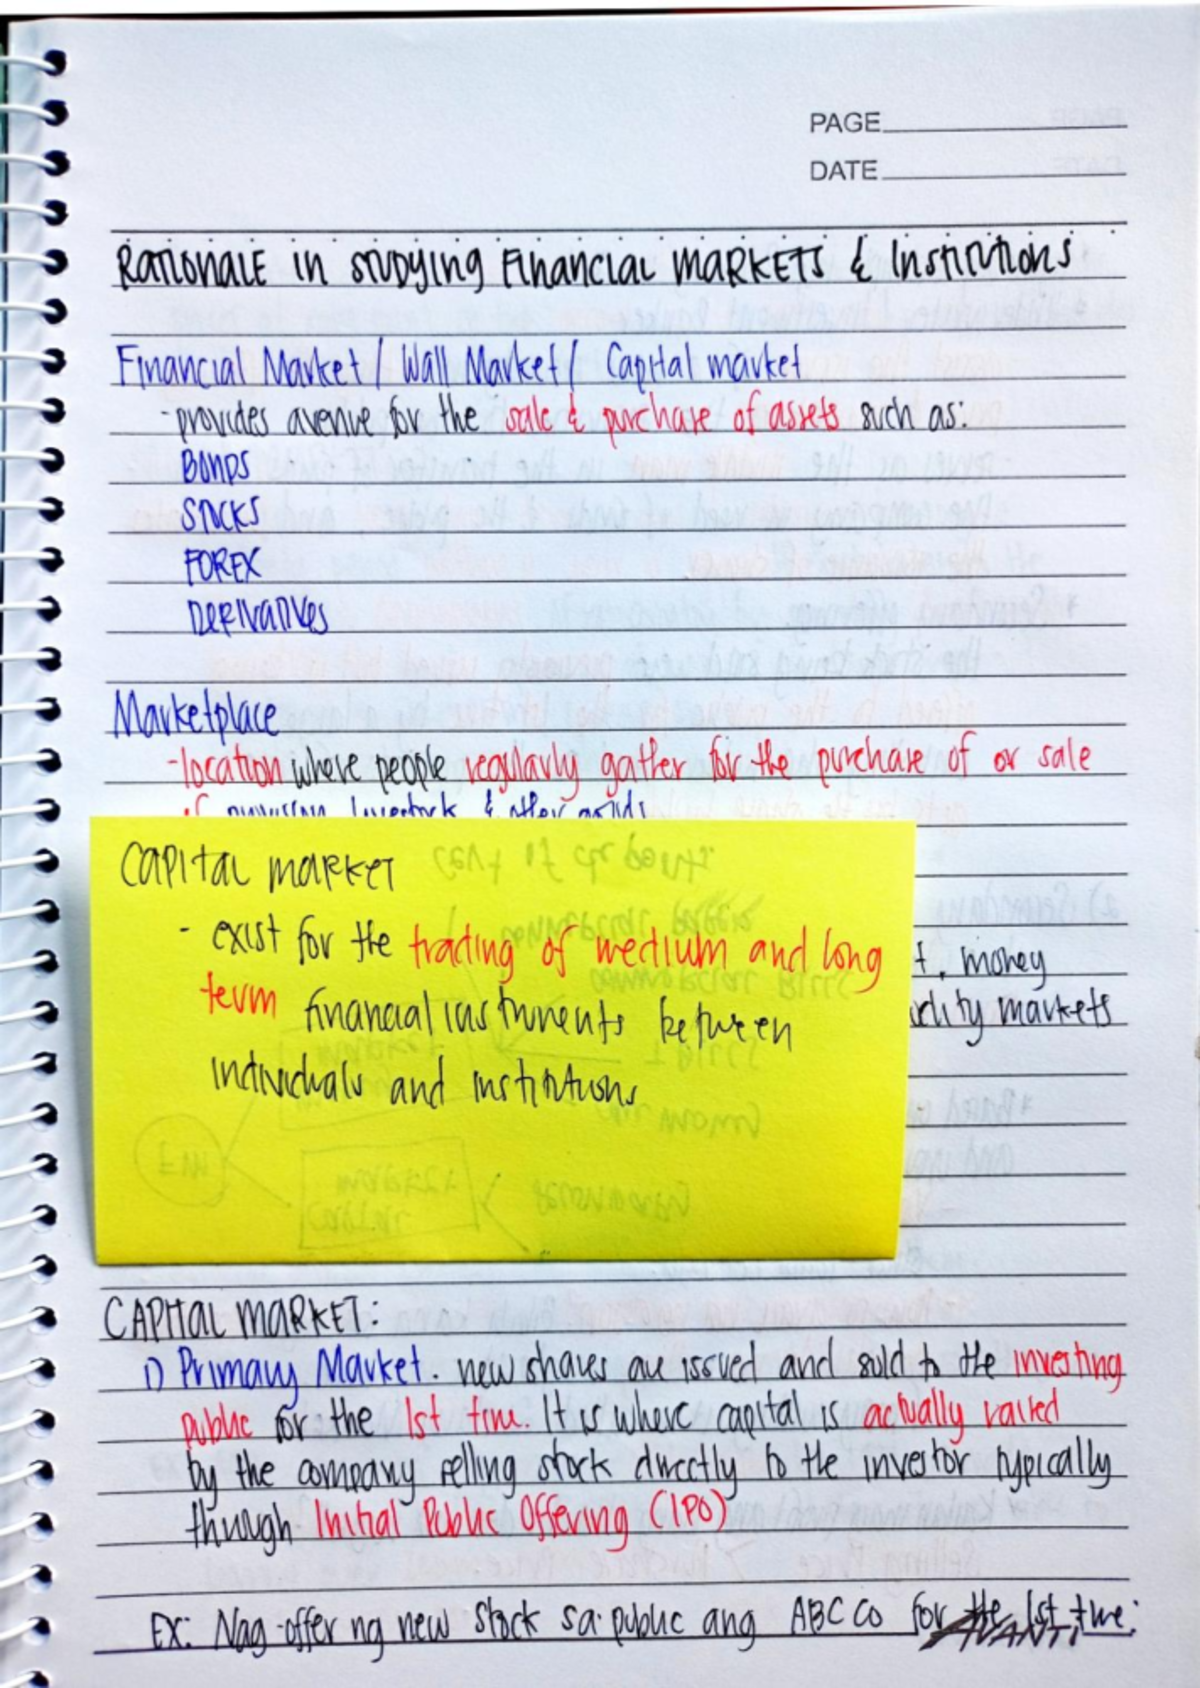 PAGE
DATE
RATIONALE IN STUDYING FINANCIAL MARKETS & INSTITUTIONS
Financial Market / Wall Market / Capital market
-provides avenue for the sale & purchase of assets such as:
BONDS
STOCKS
FOREX
DERIVATIVES
Marketplace
-location where people regularly gather for the purchase of or sale
of provision, livestock & other goods
CAPITAL MARKET
- exist for the trading of medium and long
term financial instruments between
individuals and institutions
t, money
markets
CAPITAL MARKET:
1) Primary Market. new shares are issued and sold to the investing
public for the 1st time. It is where capital is actually raised
by the company selling stock directly to the investor typically
through Initial Public Offering (IPO)
Ex: Nag-offer ng new stock sa public ang ABC Co for the 1st time.